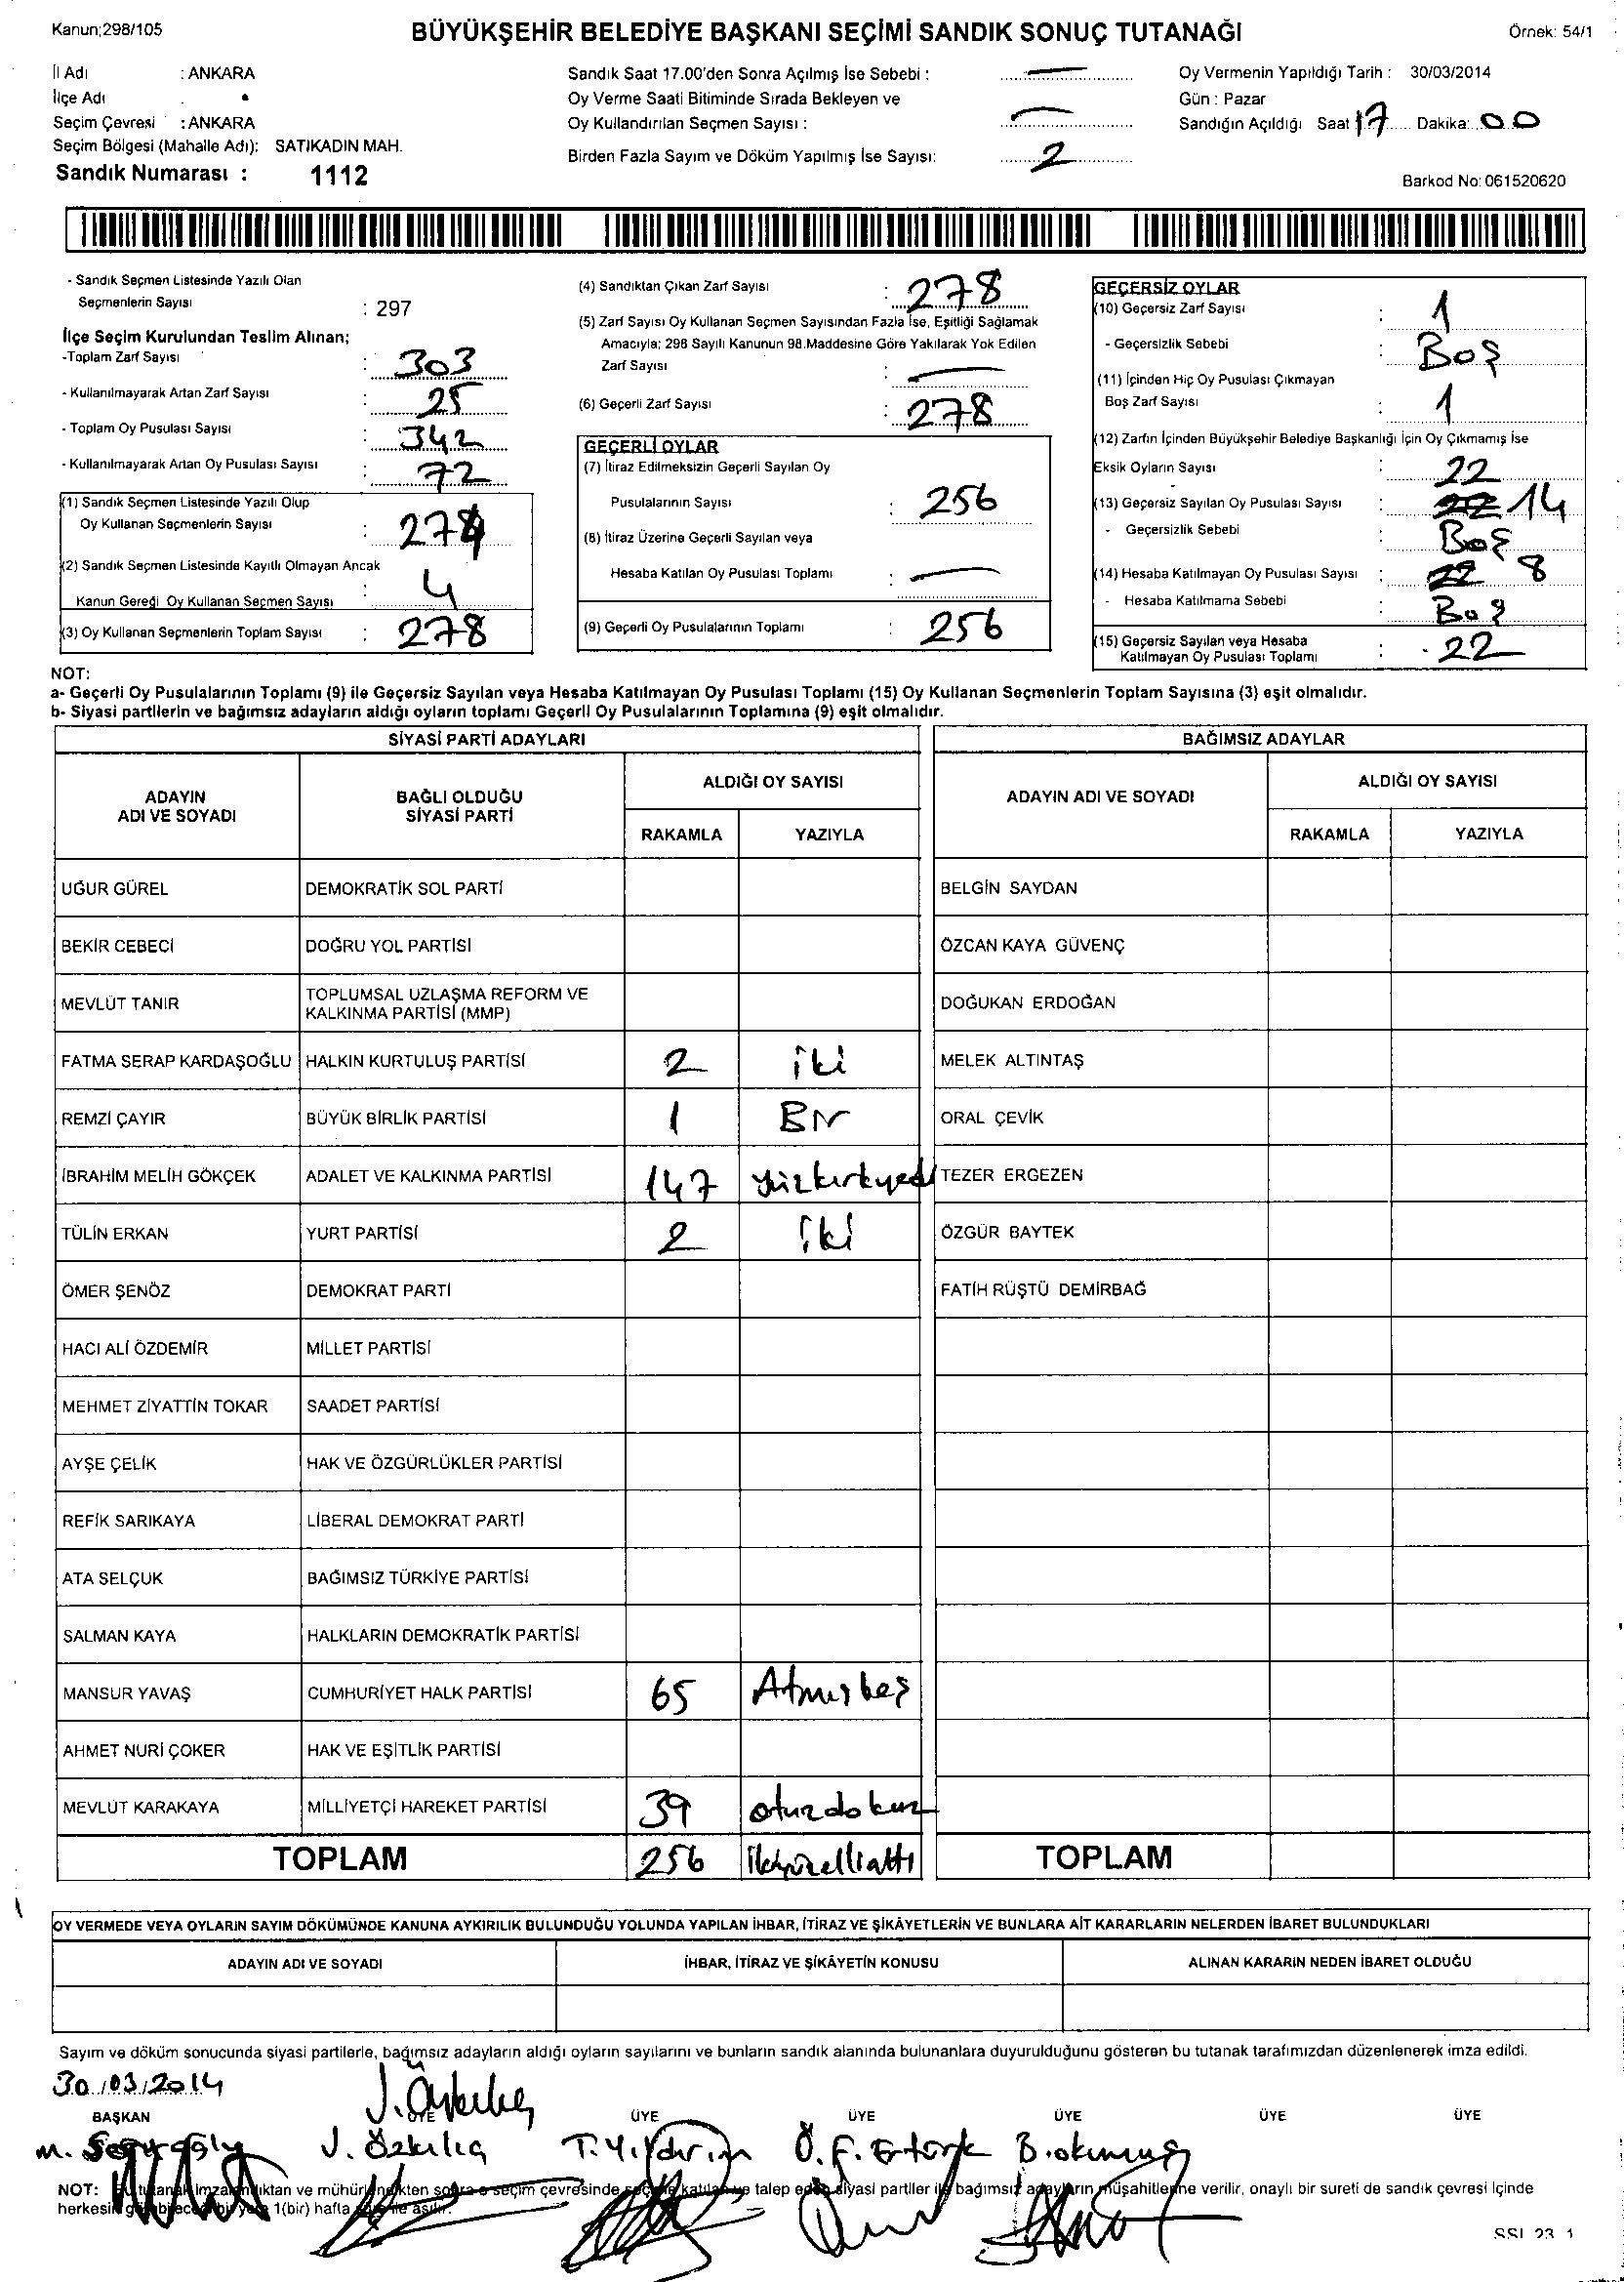 Kanun;298/105
BÜYÜKŞEHİR BELEDİYE BAŞKANI SEÇİMİ SANDIK SONUÇ TUTANAĞI
Örnek: 54/1
İl Adı : ANKARA
İlçe Adı
Seçim Çevresi : ANKARA
Seçim Bölgesi (Mahalle Adı): SATIKADIN MAH.
Sandık Numarası : 1112
Sandık Saat 17.00'den Sonra Açılmış İse Sebebi : —
Oy Verme Saati Bitiminde Sırada Bekleyen ve
Oy Kullandırılan Seçmen Sayısı : —
Birden Fazla Sayım ve Döküm Yapılmış İse Sayısı: 2
Oy Vermenin Yapıldığı Tarih : 30/03/2014
Gün : Pazar
Sandığın Açıldığı Saat 17 Dakika: 00
Barkod No: 061520620
- Sandık Seçmen Listesinde Yazılı Olan
Seçmenlerin Sayısı : 297
İlçe Seçim Kurulundan Teslim Alınan;
-Toplam Zarf Sayısı : 303
- Kullanılmayarak Artan Zarf Sayısı : 25
- Toplam Oy Pusulası Sayısı : 342
- Kullanılmayarak Artan Oy Pusulası Sayısı : 72
(1) Sandık Seçmen Listesinde Yazılı Olup
Oy Kullanan Seçmenlerin Sayısı : 274
(2) Sandık Seçmen Listesinde Kayıtlı Olmayan Ancak
Kanun Gereği Oy Kullanan Seçmen Sayısı : 4
(3) Oy Kullanan Seçmenlerin Toplam Sayısı : 278
(4) Sandıktan Çıkan Zarf Sayısı : 278
(5) Zarf Sayısı Oy Kullanan Seçmen Sayısından Fazla İse, Eşitliği Sağlamak
Amacıyla; 298 Sayılı Kanunun 98.Maddesine Göre Yakılarak Yok Edilen
Zarf Sayısı : —
(6) Geçerli Zarf Sayısı : 278
GEÇERLİ OYLAR
(7) İtiraz Edilmeksizin Geçerli Sayılan Oy
Pusulalarının Sayısı : 256
(8) İtiraz Üzerine Geçerli Sayılan veya
Hesaba Katılan Oy Pusulası Toplamı : —
(9) Geçerli Oy Pusulalarının Toplamı : 256
GEÇERSİZ OYLAR
(10) Geçersiz Zarf Sayısı : 1
- Geçersizlik Sebebi : Boş
(11) İçinden Hiç Oy Pusulası Çıkmayan
Boş Zarf Sayısı : 1
(12) Zarfın İçinden Büyükşehir Belediye Başkanlığı İçin Oy Çıkmamış İse
Eksik Oyların Sayısı : 22
(13) Geçersiz Sayılan Oy Pusulası Sayısı : 22 14
- Geçersizlik Sebebi : Boş
(14) Hesaba Katılmayan Oy Pusulası Sayısı : 22 8
- Hesaba Katılmama Sebebi : Boş
(15) Geçersiz Sayılan veya Hesaba
Katılmayan Oy Pusulası Toplamı : 22
NOT:
a- Geçerli Oy Pusulalarının Toplamı (9) ile Geçersiz Sayılan veya Hesaba Katılmayan Oy Pusulası Toplamı (15) Oy Kullanan Seçmenlerin Toplam Sayısına (3) eşit olmalıdır.
b- Siyasi partilerin ve bağımsız adayların aldığı oyların toplamı Geçerli Oy Pusulalarının Toplamına (9) eşit olmalıdır.
SİYASİ PARTİ ADAYLARI
ADAYIN ADI VE SOYADI
BAĞLI OLDUĞU SİYASİ PARTİ
ALDIĞI OY SAYISI
RAKAMLA YAZIYLA
BAĞIMSIZ ADAYLAR
ADAYIN ADI VE SOYADI
ALDIĞI OY SAYISI
RAKAMLA YAZIYLA
UĞUR GÜREL DEMOKRATİK SOL PARTİ BELGİN SAYDAN
BEKİR CEBECİ DOĞRU YOL PARTİSİ ÖZCAN KAYA GÜVENÇ
MEVLÜT TANIR TOPLUMSAL UZLAŞMA REFORM VE KALKINMA PARTİSİ (MMP) DOĞUKAN ERDOĞAN
FATMA SERAP KARDAŞOĞLU HALKIN KURTULUŞ PARTİSİ 2 iki MELEK ALTINTAŞ
REMZİ ÇAYIR BÜYÜK BİRLİK PARTİSİ 1 Bir ORAL ÇEVİK
İBRAHİM MELİH GÖKÇEK ADALET VE KALKINMA PARTİSİ 147 yüzkırkyedi TEZER ERGEZEN
TÜLİN ERKAN YURT PARTİSİ 2 iki ÖZGÜR BAYTEK
ÖMER ŞENÖZ DEMOKRAT PARTİ FATİH RÜŞTÜ DEMİRBAĞ
HACI ALİ ÖZDEMİR MİLLET PARTİSİ
MEHMET ZİYATTİN TOKAR SAADET PARTİSİ
AYŞE ÇELİK HAK VE ÖZGÜRLÜKLER PARTİSİ
REFİK SARIKAYA LİBERAL DEMOKRAT PARTİ
ATA SELÇUK BAĞIMSIZ TÜRKİYE PARTİSİ
SALMAN KAYA HALKLARIN DEMOKRATİK PARTİSİ
MANSUR YAVAŞ CUMHURİYET HALK PARTİSİ 65 Atmışbeş
AHMET NURİ ÇOKER HAK VE EŞİTLİK PARTİSİ
MEVLÜT KARAKAYA MİLLİYETÇİ HAREKET PARTİSİ 39 otuzdokuz
TOPLAM 256 ikiyüzelliattı TOPLAM
OY VERMEDE VEYA OYLARIN SAYIM DÖKÜMÜNDE KANUNA AYKIRILIK BULUNDUĞU YOLUNDA YAPILAN İHBAR, İTİRAZ VE ŞİKÂYETLERİN VE BUNLARA AİT KARARLARIN NELERDEN İBARET BULUNDUKLARI
ADAYIN ADI VE SOYADI İHBAR, İTİRAZ VE ŞİKÂYETİN KONUSU ALINAN KARARIN NEDEN İBARET OLDUĞU
Sayım ve döküm sonucunda siyasi partilerle, bağımsız adayların aldığı oyların sayılarını ve bunların sandık alanında bulunanlara duyurulduğunu gösteren bu tutanak tarafımızdan düzenlenerek imza edildi.
30/03/2014
BAŞKAN ÜYE ÜYE ÜYE ÜYE ÜYE ÜYE
J. Özkılıç T. Yıldırım Ö. F. Ertürk B. okumuş
NOT: Bu tutanak imzalandıktan ve mühürlendikten sonra o seçim çevresinde seçime katılan ve talep eden siyasi partiler ile bağımsız adayların müşahitlerine verilir, onaylı bir sureti de sandık çevresi içinde
herkesin görebileceği bir yere 1(bir) hafta süre ile asılır.